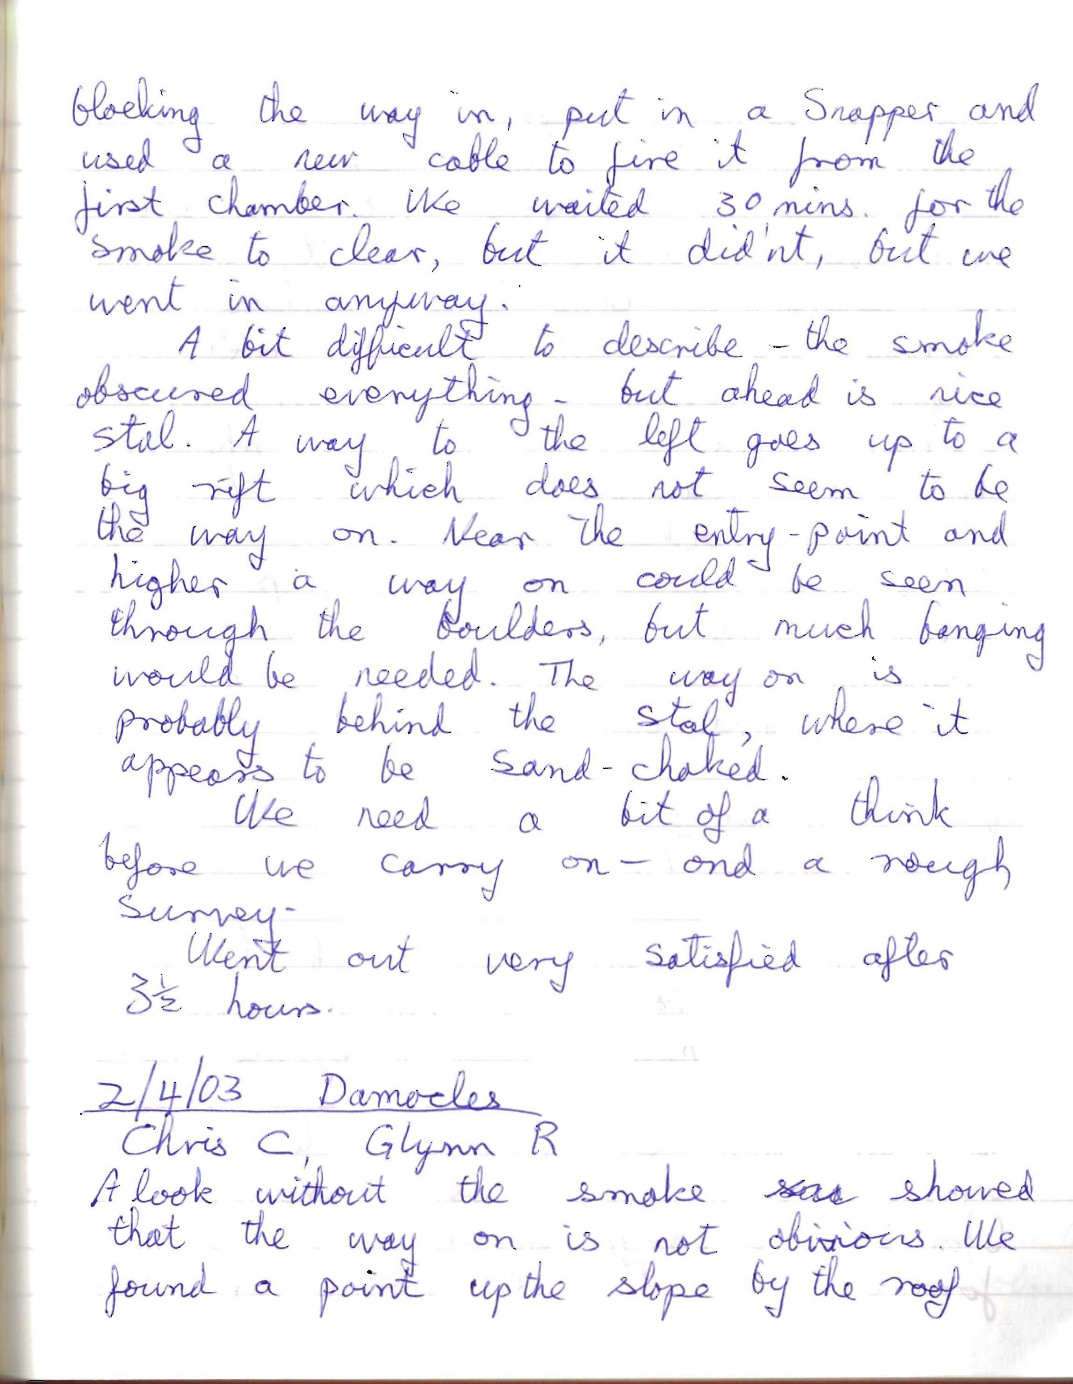 blocking the way in, put in a Snapper and
used a new cable to fire it from the
first chamber. We waited 30 mins. for the
smoke to clear, but it did'nt, but we
went in anyway.
A bit difficult to describe - the smoke
obscured everything - but ahead is nice
stal. A way to the left goes up to a
big rift which does not seem to be
the way on. Near the entry-point and
higher a way on could be seen
through the boulders, but much banging
would be needed. The way on is
probably behind the stal, where it
appears to be sand-choked.
We need a bit of a think
before we carry on - and a rough
survey.
Went out very satisfied after
3½ hours.
2/4/03 Damocles
Chris C, Glynn R
A look without the smoke showed
that the way on is not obvious. We
found a point up the slope by the roof